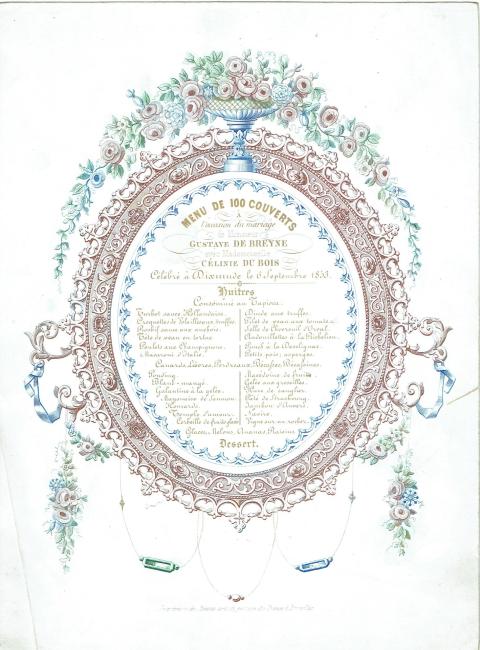 MENU DE 100 COUVERTS
à
l'occasion du mariage
de Monsieur
GUSTAVE DE BREYNE
avec Mademoiselle
CÉLINIE DU BOIS
Célébré à Dixmude le 6 Septembre 1853.
Huîtres
Consommé au Tapioca.
Turbot sauce Hollandaise.
Croquettes de Vol
Rosbif sauce
Tête de veau en tortue
Poulets aux Champignons.
Macaroni d'Italie.
Dinde aux truffes.
Filet de veau aux tomates.
Selle de Chevreuil
Andouillettes à la Richelieu.
Petits pois, asperges.
Canards, Lièvres, Perdreaux, Bécasses, Bécassines.
Pouding.
Blanc-mangé.
Mayonnaise de Saumon.
Galantine à la gelée.
Homards.
Temple d'amour.
Corbeille de fruits glacés
Macédoine de fruits.
Gelée aux groseilles.
Hure de Sanglier.
Pâté de Strasbourg.
Jambon d'Anvers.
Savoie.
Vigne sur un rocher.
Glaces, Melons, Ananas, Raisins.
Dessert.